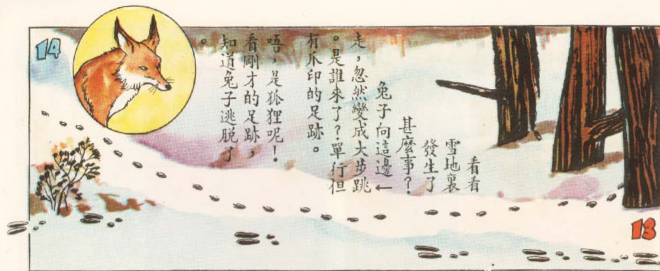 看看
雪地裏
發生了
甚麼事？
兔子向這邊←
走，忽然變成大步跳
。是誰來了？單行但
有爪印的足跡。
唔，是狐狸呢！
看剛才的足跡，
知道兔子逃脫了
。
13
14